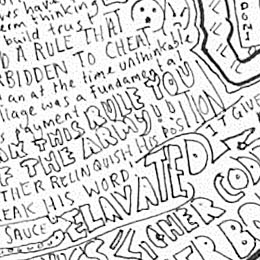 ves have
term thinking
build trust
D A RULE THAT
RBIDDEN TO CHEAT
an at the time unthinkable
llage was a fundamental
s payment
THIS RULE YOU
F THE ARMY!!
THER RELINQUISH HIS POSITION
EAK HIS WORD
IT GIVE
ELAVATED
SAUCE
CHER COD
ER BO